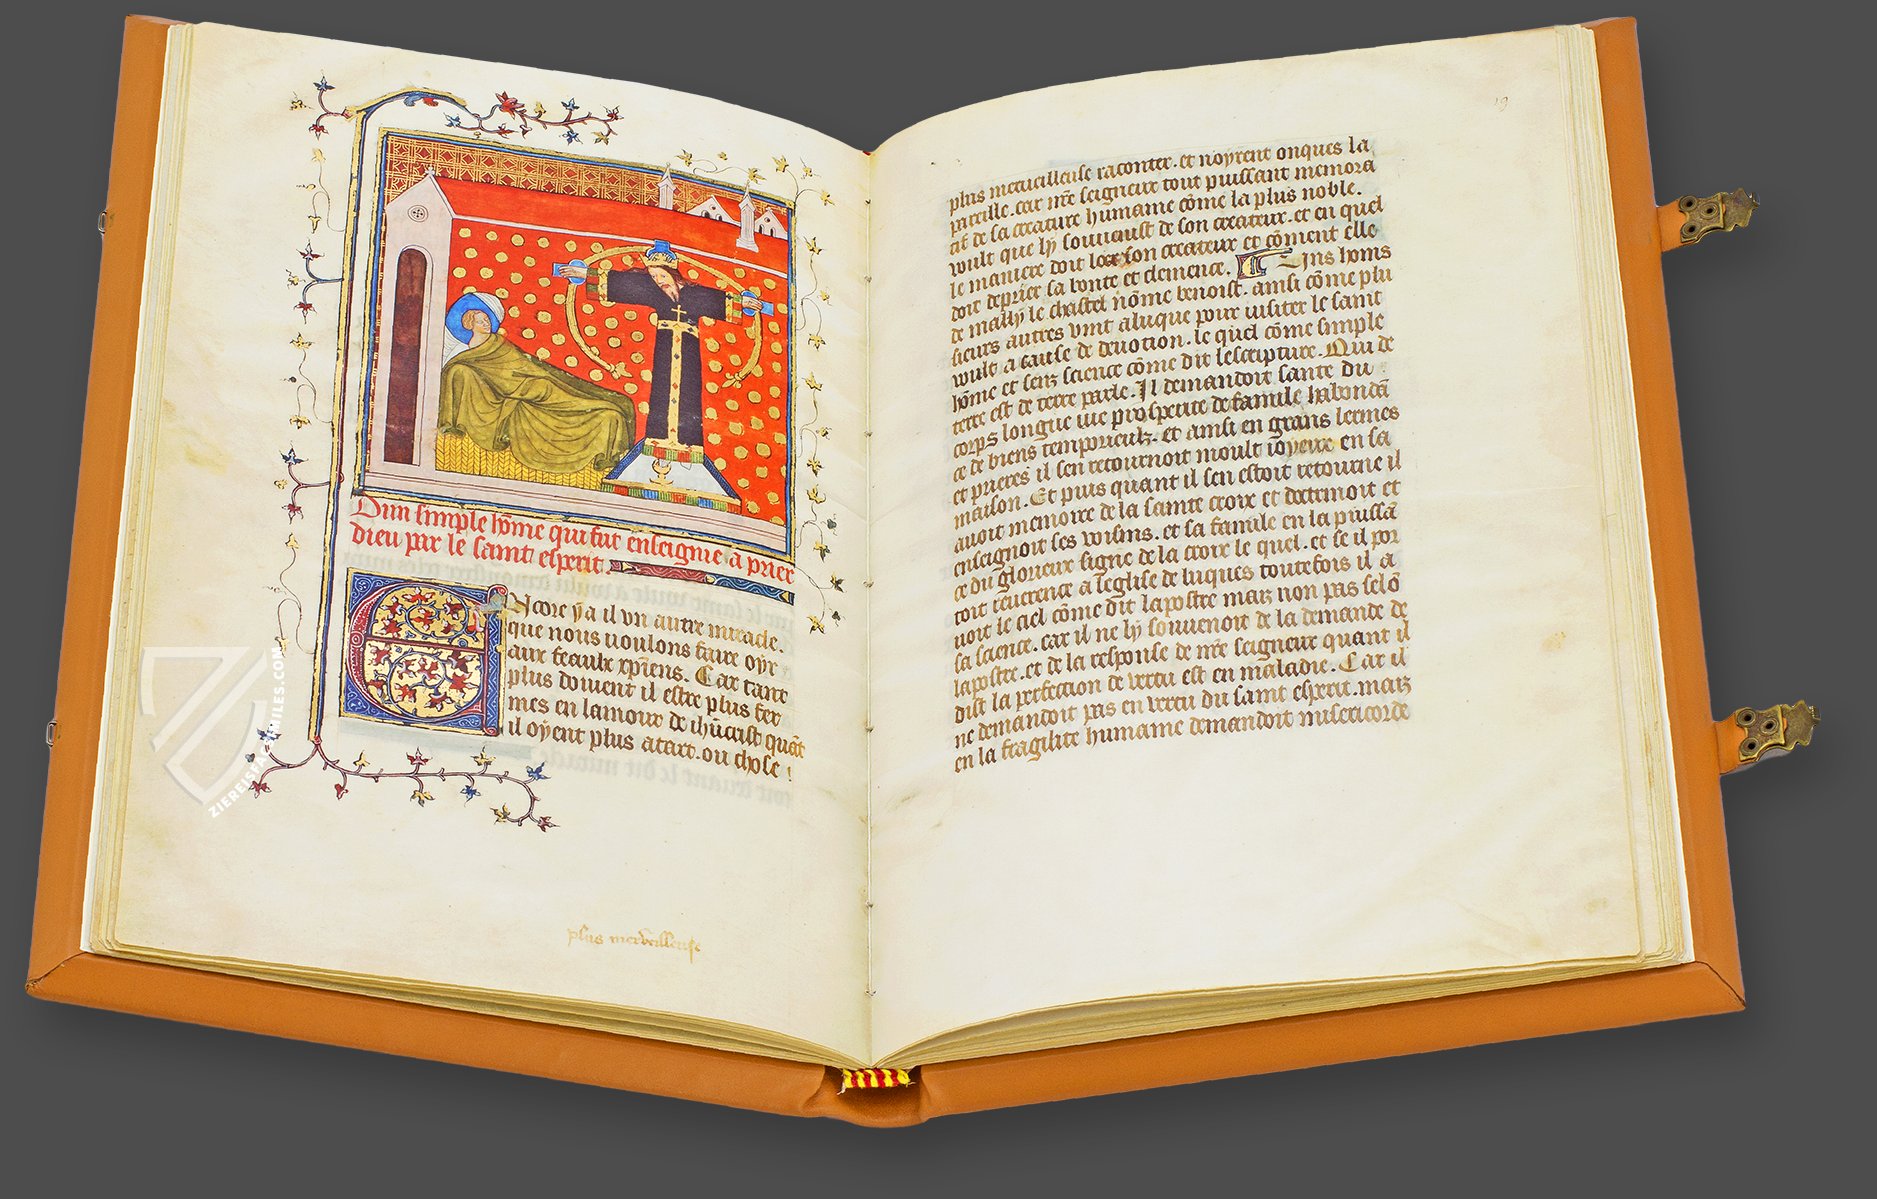 Dun simple hõme qui fut enseignie a prier
dieu par le saint esperit
Encore y a il vn autre miracle.
que nous uoulons faire oyr
aux feaulx xp̃iens. Car tant
plus doiuent il estre plus fer
mes en lamour de ihũcrist quãt
il oyent plus atart. ou chose
plus merveilleuse
19
plus merueilleuse raconter. et noyrent onques la
pareille. car nr̃e seigneur tout puissant memora
tif de sa creature humaine cõme la plus noble.
wult que ly souuenist de son createur. et en quel
le maniere doit son createur et cõment elle
doit deprier sa bonte et clemence. Uns homs
de mally le chastel nõme benoist. ainsi cõme plu
sieurs autres vint aluque pour uisiter le saint
wult a cause de deuotion. le quel cõme simple
hõme et senz science cõme dit lescripture. Qui de
terre est de terre parle. Il demandoit sante du
corps longue uie prosperite de famile habondã
ce de biens temporieulz. et ainsi en grans lermes
et prieres il sen retournoit moult ioyeux en sa
maison. Et puis quant il sen estoit retourne il
auoit memoire de la sainte croix et
enseignoit ses uoisins. et sa famile en la puissã
ce du glorieux signe de la croix le quel. et se il por
toit reuerence a leglise de luques toutefois il a
uoit le ciel cõme dit lapostre maiz non pas selõ
sa science. car il ne ly souuenoit de la demande de
lapostre. et de la response de nr̃e seigneur quant il
dist la perfection de vertu est en maladie. Car il
ne demandoit pas en vertu du saint esperit. maiz
en la fragilite humaine demandoit misericorde
ZIERENSFACSIMILES.COM